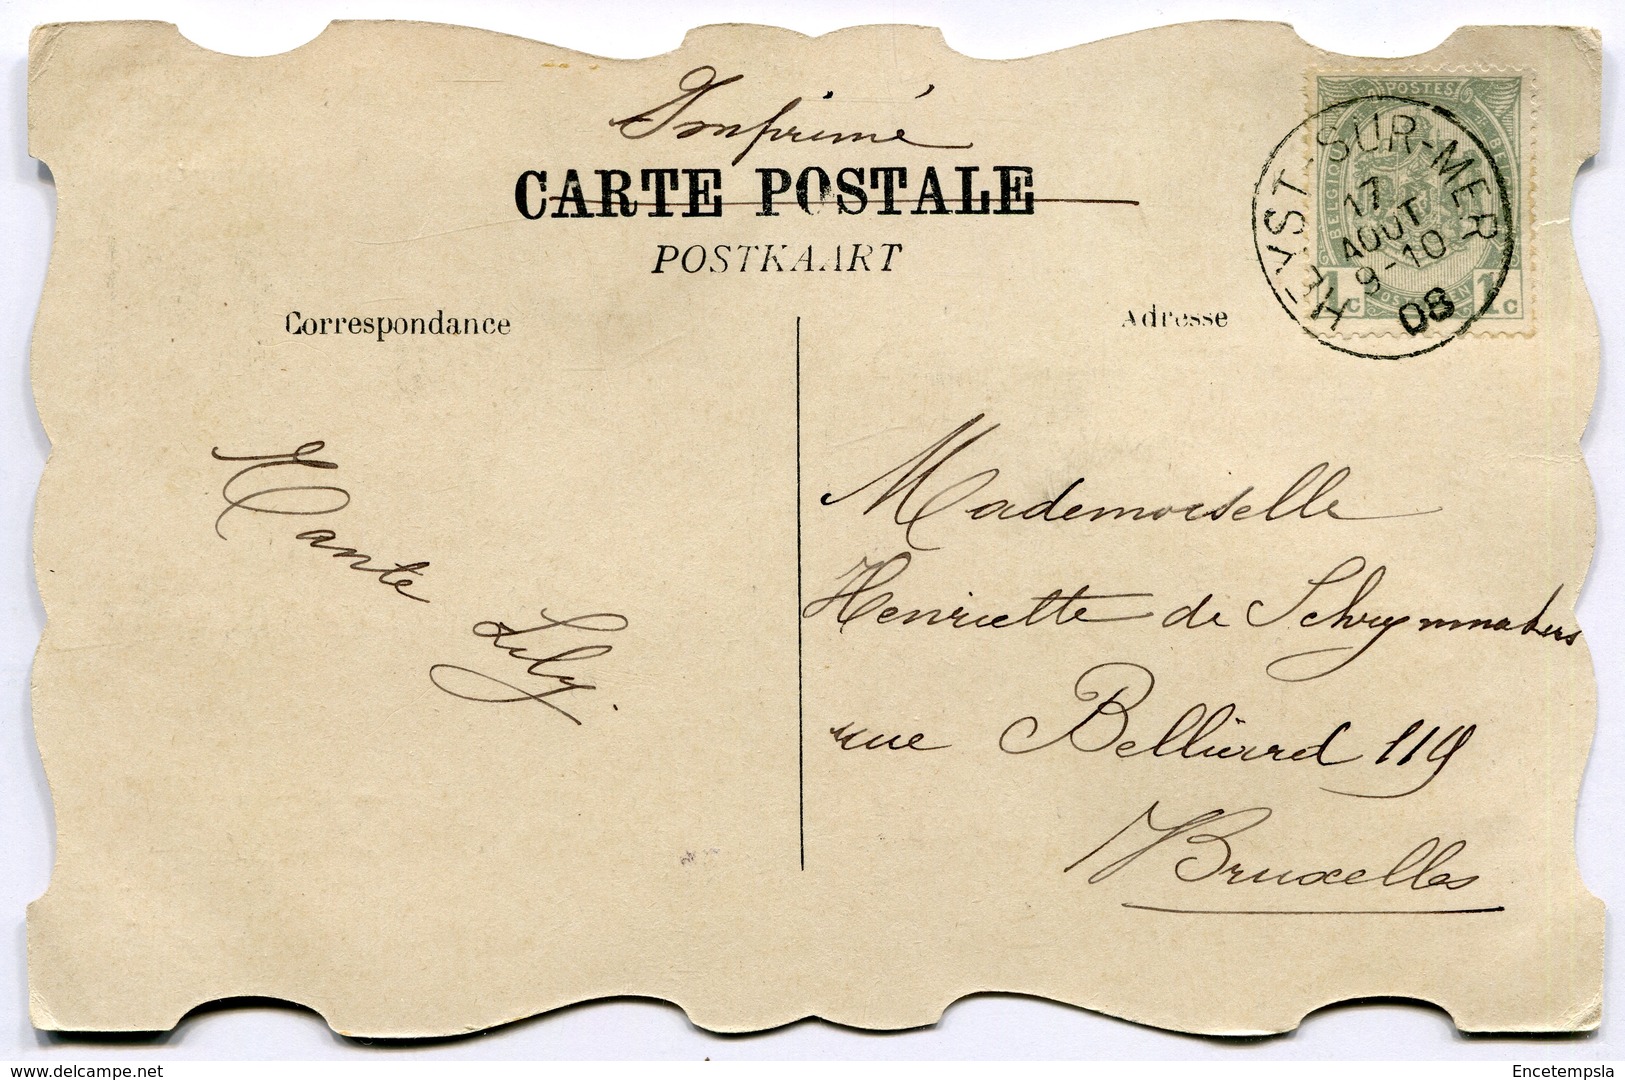 Imprimé
CARTE POSTALE
POSTKAART
Correspondance
Adresse
POSTES
BELGIQUE
1c
1c
HEYST-SUR-MER
17
AOUT
9-10
08
Tante
Lily.
Mademoiselle
Henriette de Schrynmakers
rue Belliard 119
Bruxelles
delcampe.net
Encetempsla